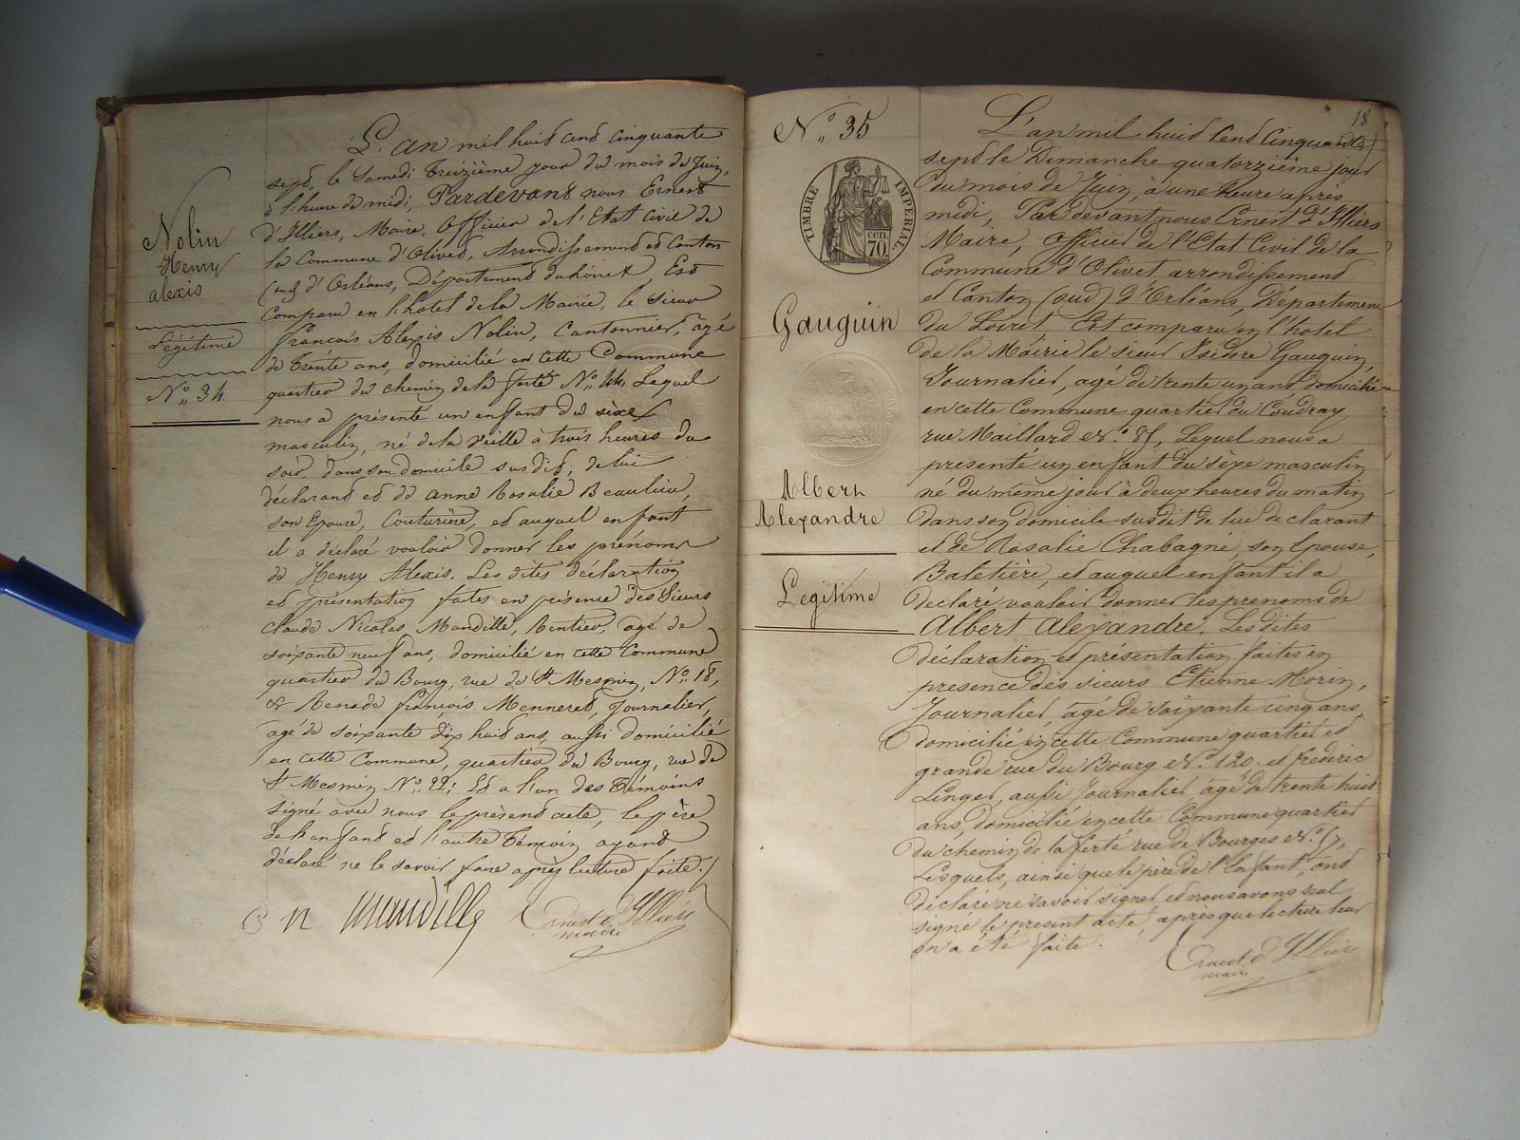 Nolin
Henry
alexis
Légitime
N° 34
L'an mil huit cent cinquante
sept, le Samedi Treizième jour du mois de Juin,
à l'heure de midi, Pardevant nous Ernest
d'Illiers, Maire, Officier de l'Etat Civil de
la Commune d'Olivet, Arrondissement et Canton
(sud) d'Orléans, Département du Loiret, Est
comparu en l'hôtel de la Mairie, le Sieur
françois Alexis Nolin, Cantonnier, âgé
de Trente ans, domicilié en cette Commune
quartier du chemin de la ferté N° 44, Lequel
nous a présenté un enfant du sexe
masculin, né de la veille à trois heures du
soir, dans son domicile susdit, de lui
déclarant et de anne Rosalie Beaulieu,
son Epouse, Couturière, et auquel enfant
il a déclaré vouloir donner les prénoms
de Henry Alexis. Les dites déclaration
et présentation faites en présence des Sieurs
Claude Nicolas Mandille, Rentier, âgé de
soixante neuf ans, domicilié en cette Commune
quartier du Bourg, rue de St Mesmin, N° 18,
& françois Menneret, Journalier,
âgé de soixante dix huit ans, aussi domicilié
en cette Commune, quartier du Bourg, rue de
St Mesmin N° 22; Et a l'un des Témoins
signé avec nous le présent acte, le père
de l'enfant et l'autre Témoin ayant
déclaré ne le savoir faire après lecture faite.
n mandille Ernest d'Illiers
maire
18
N° 35
TIMBRE IMPERIAL
CEN
70
Gauguin
Albert
Alexandre
Légitime
L'an mil huit Cent Cinquante
sept le Dimanche quatorzième jour
du mois de Juin, à une heure après
midi, Par devant nous Ernest d'Illiers
Maire, Officier de l'Etat Civil de la
Commune d'Olivet, arrondissement
et Canton (sud) d'Orléans, Département
du Loiret, Est comparu en l'hotel
de la Mairie le sieur Isidore Gauguin,
Journalier, agé de trente un ans domicilié
en cette Commune quartier du Coudray
rue Maillard Lequel nous a
présenté un enfant du sexe masculin
né du même jour à deux heures du matin
dans son domicile susdit de lui déclarant
et de Rosalie Chabagné, son Epouse,
Batetière, et auquel enfant il a
déclaré vouloir donner les prenoms de
Albert Alexandre. Les dites
déclaration et présentation faites en
présence des sieurs Etienne Morin,
Journalier, âgé de soixante cinq ans,
domicilié en cette Commune quartier et
grande rue du Bourg N° 120 et frédéric
Linget, aussi Journalier âgé de trente huit
ans, domicilié en cette Commune quartier
du chemin de la ferté rue de Bourges
Lesquels, ainsi que le père de l'Enfant, ont
déclaré ne savoir signer, et nous avons seul
signé le présent acte, après que lecture leur
en a été faite.
Ernest d'Illiers
maire